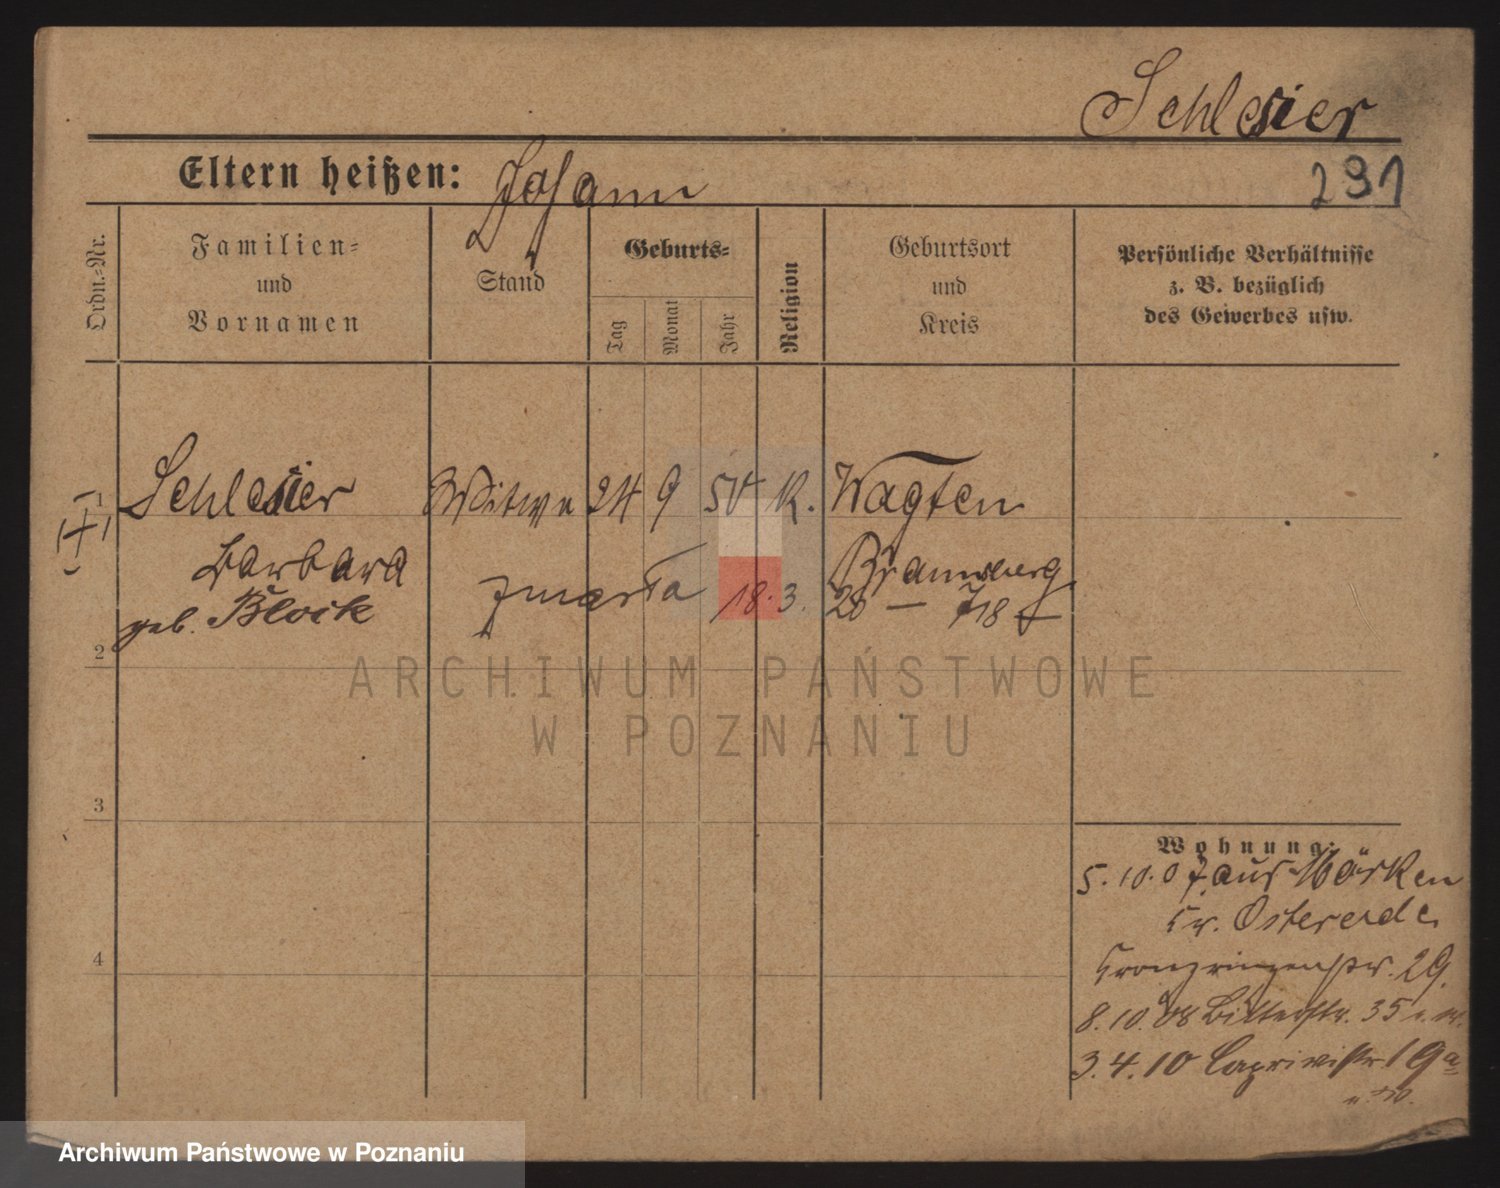 Schlesier
Eltern heißen: Johann
291
Ordn.-Nr.
Familien-
und
Vornamen
Stand
Geburts-
Tag
Monat
Jahr
Religion
Geburtsort
und
Kreis
Persönliche Verhältnisse
z. B. bezüglich
des Gewerbes usw.
1 Schlesier Witwe 24 9 50 K. Wagten
Barbara Braunsberg
geb. Block zmarła 18.3.
2
ARCHIWUM PAŃSTWOWE
W POZNANIU
3
Wohnung:
5.10.07 aus Mörken
Kr. Osterode
4
Kronprinzenstr. 29.
8.10.08 Bitterstr. 35
3.4.10 Caprivistr. 19a
Archiwum Państwowe w Poznaniu